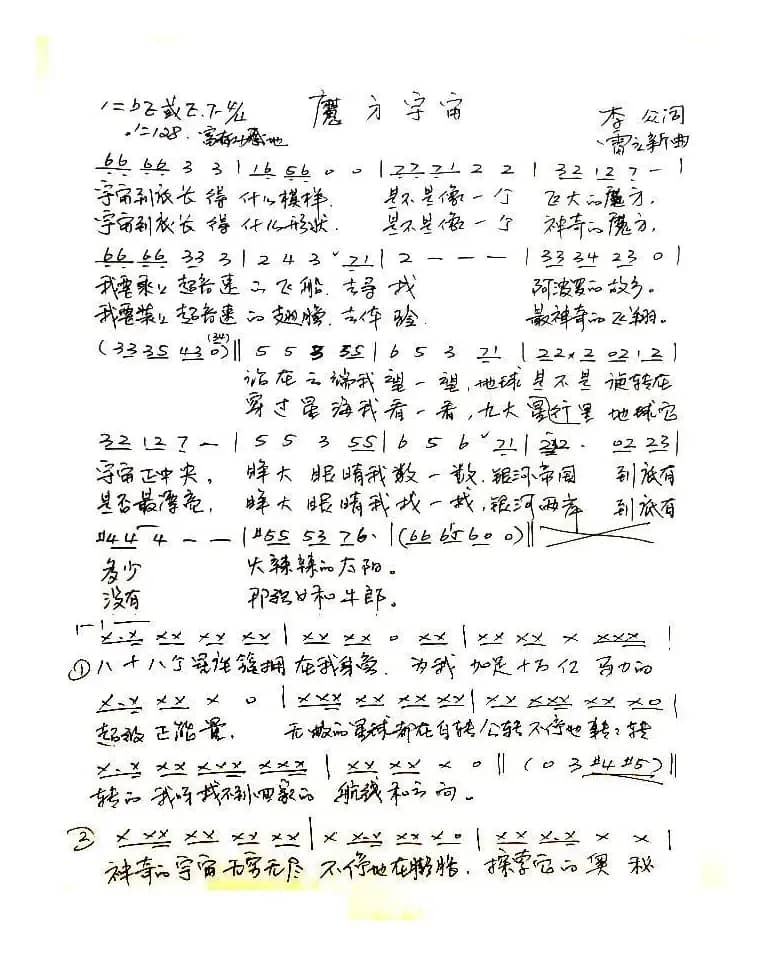 1=bE或E.F 4/4 魔方宇宙 李 众词
♩=128. 雷立新曲
66 66 3 3 | 16 56 0 0 | 77 71 2 2 | 32 12 7 - |
宇宙到底长得 什么模样. 是不是像一个 飞大的魔方,
宇宙到底长得 什么形状. 是不是像一个 神奇的魔方,
66 66 33 3 | 2 4 3 ˇ71 | 2 - - - | 33 34 23 0 |
我要乘上超音速的飞船.去寻找 阿波罗的故乡。
我要装上超音速的翅膀.去体验 最神奇的飞翔。
(33 35 43 0) || 5 5 3 55 | 6 5 3 21 | 22×2 02 12 |
站在云端我望一望,地球是不是 旋转在
穿过星海我看一看,九大星行里 地球它
32 12 7 - | 5 5 3 55 | 6 5 6 ˇ21 | 212· 02 23 |
宇宙正中央, 睁大眼睛我数一数.银河帝国 到底有
是否最漂亮, 睁大眼睛我找一找,银河两岸 到底有
#44 4 - - | #55 53 76· | (66 65 60 0) ||
多少 火辣辣的太阳。
没有 那织女和牛郎。
x·x xx xx xx | xx xx 0 xx | xx xx x xxx |
①八十八个星座簇拥在我身旁. 为我加足十万亿马力的
x·x xx x 0 | xxx xx xx xx | xx xxx xx x0 |
超级正能量, 无数的星球都在自转公转不停地转转
x·x xx xxx xxx | xx xx x 0 || (0 3 #4 #5) ||
转的我呀找不到回家的 航线和方向。
② x xxx xx xx xx | x x·x xx x0 | xx x·x x x |
神奇的宇宙无穷无尽 不停地在膨胀, 探索它的奥秘